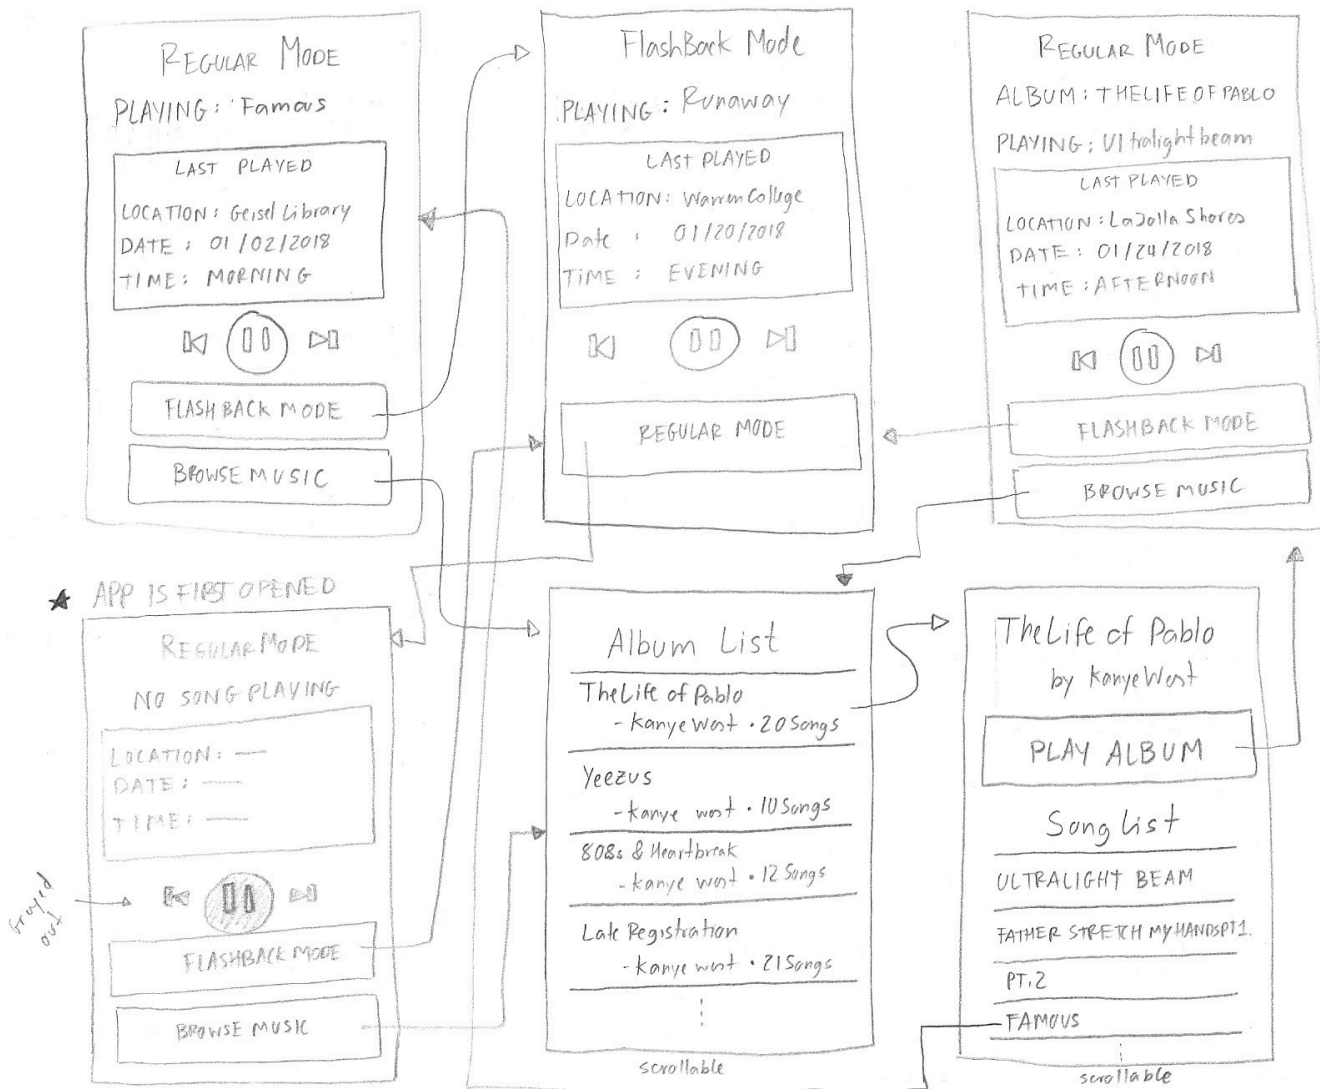 REGULAR MODE
PLAYING: Famous
LAST PLAYED
LOCATION: Geisel Library
DATE: 01/02/2018
TIME: MORNING
FLASHBACK MODE
BROWSE MUSIC
FlashBack Mode
PLAYING: Runaway
LAST PLAYED
LOCATION: Warren College
Date : 01/20/2018
TIME : EVENING
REGULAR MODE
REGULAR MODE
ALBUM: THE LIFE OF PABLO
PLAYING: Ultralight beam
LAST PLAYED
LOCATION: La Jolla Shores
DATE: 01/24/2018
TIME: AFTERNOON
FLASHBACK MODE
BROWSE MUSIC
★ APP IS FIRST OPENED
REGULAR MODE
NO SONG PLAYING
LOCATION: —
DATE: —
TIME: —
Grayed
out
FLASHBACK MODE
BROWSE MUSIC
Album List
The Life of Pablo
- Kanye West · 20 Songs
Yeezus
- Kanye west · 10 Songs
808s & Heartbreak
- Kanye west · 12 Songs
Late Registration
- Kanye west · 21 Songs
scrollable
The Life of Pablo
by Kanye West
PLAY ALBUM
Song List
ULTRALIGHT BEAM
FATHER STRETCH MY HANDS PT 1.
PT. 2
FAMOUS
scrollable